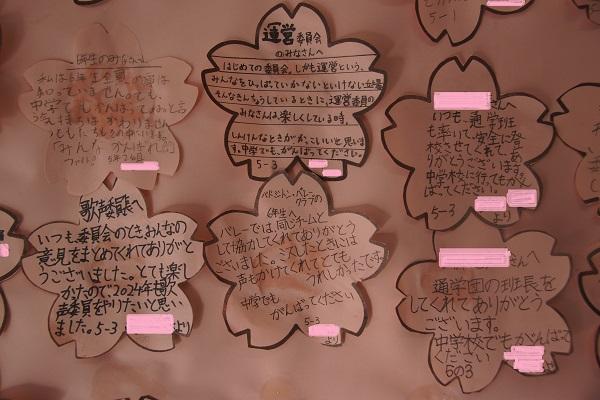 5-1
6年生のみなさんへ
中学でもがんばってねっと言う
気持ちはかわりません。
みんな がんばれ!!
ファイト! 5年2組
運営委員会
のみなさんへ
はじめての委員会。しかも運営という、
みんなをひっぱっていかないといけない立場。
そんなきんちょうしているときに、運営委員の
みなさんは、楽しくしている時。
しんけんなときがかっこいいと思いま
す。中学でも、がんばってください。
5-3
さんへ
いつも、通学班
を率いて、安全に登
校させてくれてあ
りがとうございます。
中学校に行っても頑
張ってください。
5-3
より
歌声委員長へ
いつも委員会のときおんなの
意見をまとめてくれてありがと
うございました。とても楽し
かたので2024年も歌
声委員をやりたいと思い
ました。5-3 より
バドミントン・バレー
クラブの
6年生へ
バレーでは同じチームと
して協力してくれてありがとう
ございました。こしたときには
声もかけてくれてとても
うれしかったです。
中学でも
がんばってください
5-3
より
さんへ
通学団の班長を
してくれてありがとう
ございます。
中学校でもがんばって
ください
5の3
より